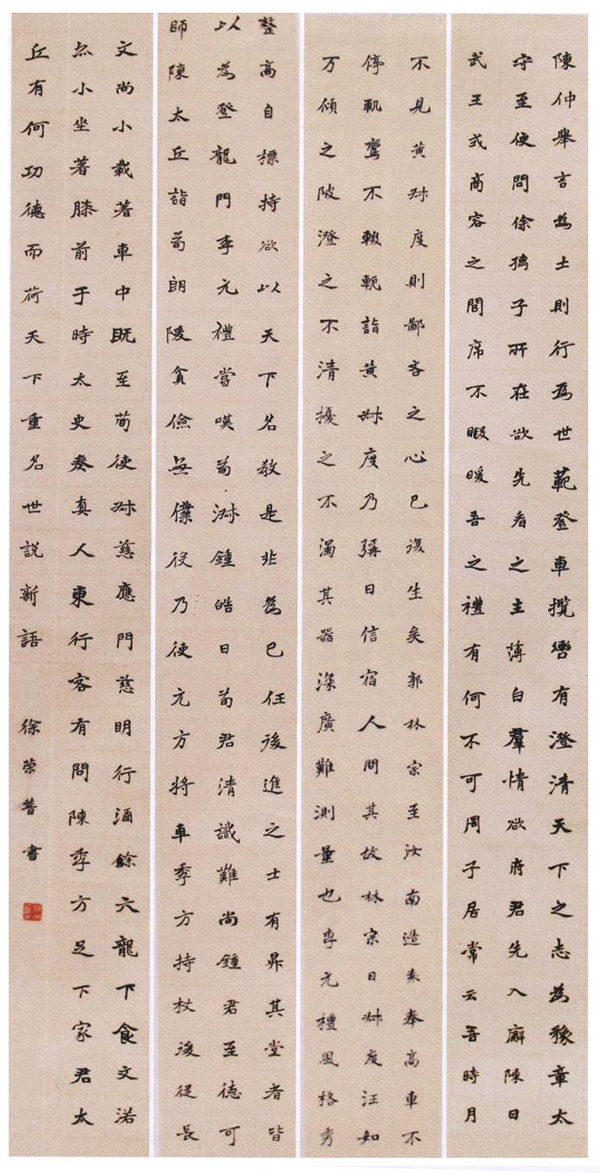 陳仲舉言為士則行為世範登車攬轡有澄清天下之志為豫章太
守至便問徐孺子所在欲先看之主薄白羣情欲府君先入廨陳曰
武王式商容之閭席不暇暖吾之禮有何不可周子居常云吾時月
不見黃叔度則鄙吝之心已復生矣郭林宗至汝南造袁奉高車不
停軌鸞不輟軛詣黃叔度乃彌日信宿人問其故林宗曰叔度汪如
万傾之陂澄之不清擾之不濁其器深廣難測量也李元禮風格秀
整高自標持欲以天下名教是非為己任後進之士有昇其堂者皆
以為登龍門李元禮嘗嘆荀淑鍾皓曰荀君清識難尚鍾君至德可
師陳太丘詣荀朗陵貧儉無僕役乃使元方將車季方持杖後從長
文尚小載著車中既至荀使叔慈應門慈明行酒餘六龍下食文渃
亦小坐著膝前于時太史奏真人東行客有問陳季方足下家君太
丘有何功德而荷天下重名世說新語 徐榮普書